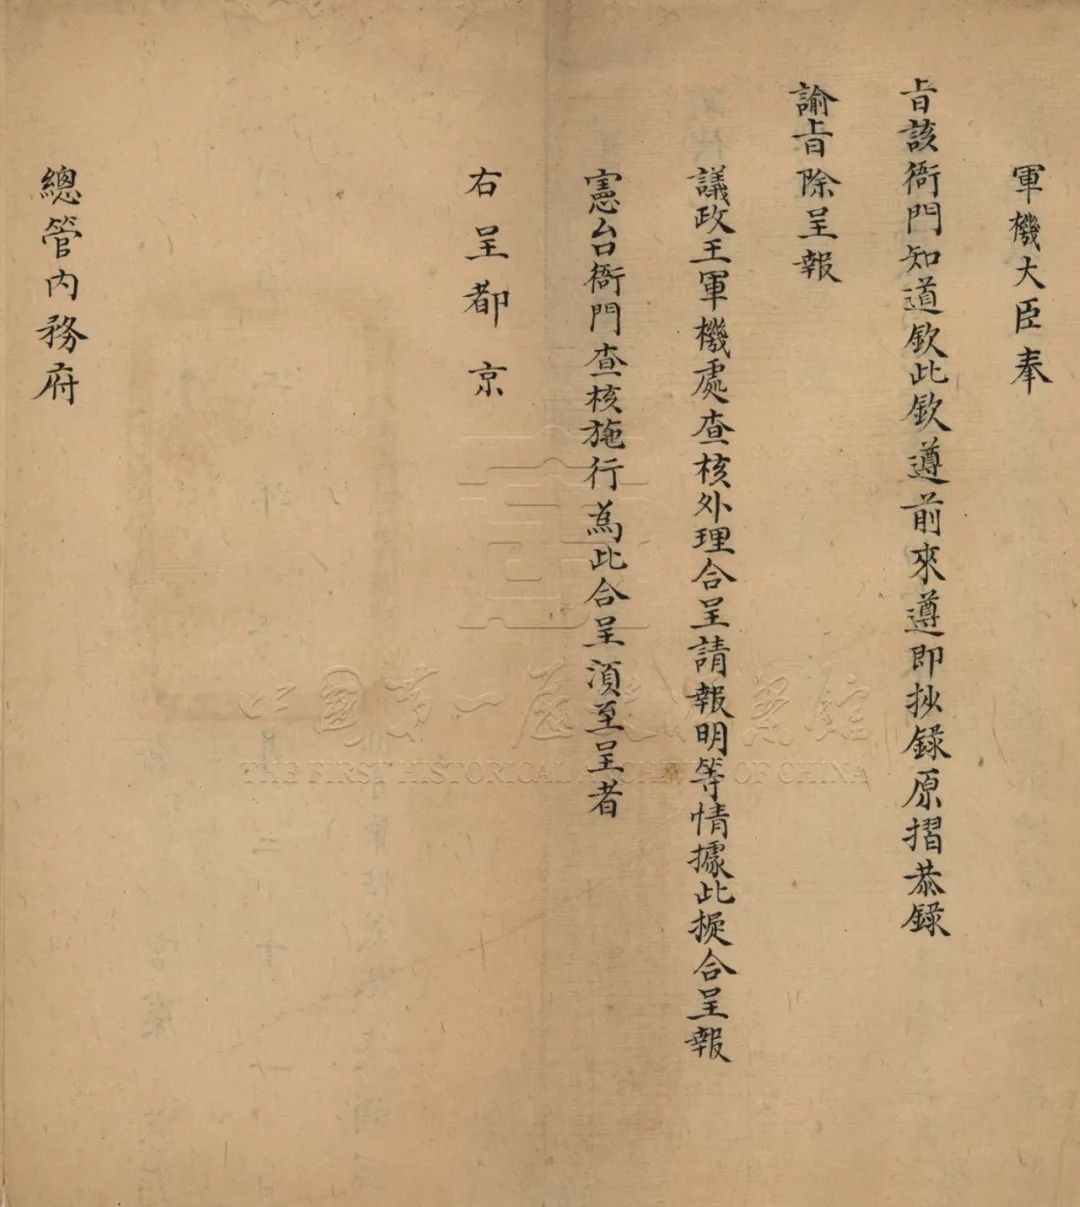 軍機大臣奉
旨該衙門知道欽此欽遵前來遵即抄錄原摺恭錄
諭旨除呈報
議政王軍機處查核外理合呈請報明等情據此擬合呈報
憲台衙門查核施行為此合呈須至呈者
右呈都京
總管內務府
中國第一歷史檔案館
THE FIRST HISTORICAL ARCHIVES OF CHINA